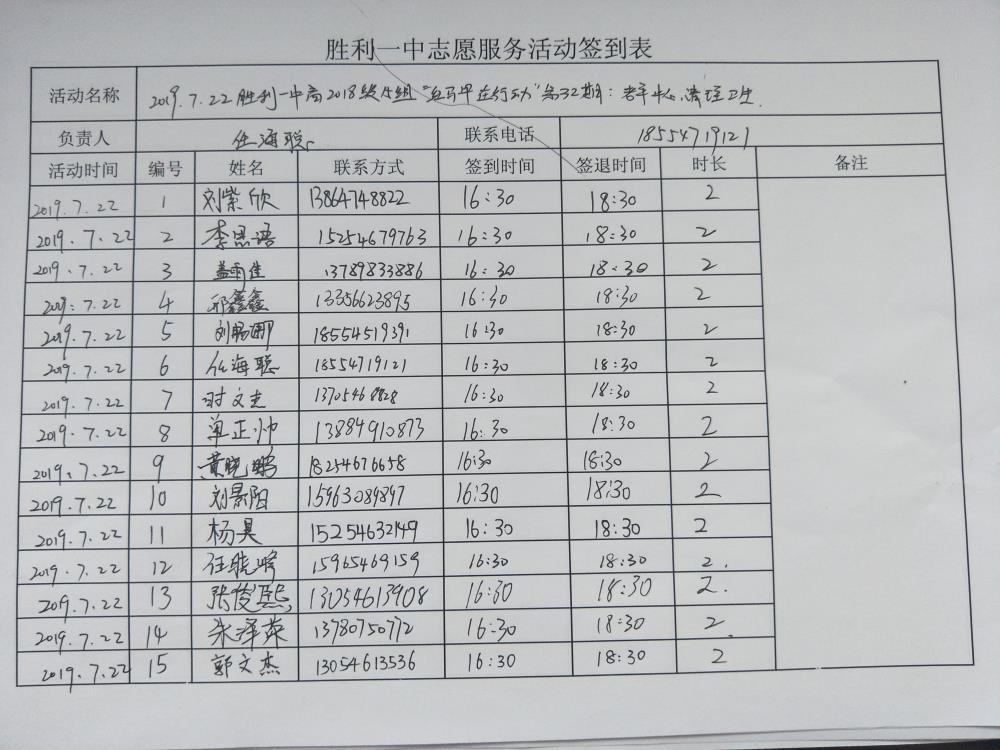 胜利一中志愿服务活动签到表
活动名称 2019.7.22 胜利一中高2018级 组 在行动"第32期： 中心,清理卫生.
负责人 任海聪 联系电话 18554719121
活动时间 编号 姓名 联系方式 签到时间 签退时间 时长 备注
2019.7.22 1 刘紫欣 13864748822 16:30 18:30 2
2019.7.22 2 李思语 15254679763 16:30 18:30 2
2019.7.22 3 盖雨佳 13789833886 16:30 18:30 2
2019.7.22 4 邱鑫鑫 13356623895 16:30 18:30 2
2019.7.22 5 刘 18554519391 16:30 18:30 2
2019.7.22 6 任海聪 18554719121 16:30 18:30 2
2019.7.22 7 时文 1370546 8828 16:30 18:30 2
2019.7.22 8 单正帅 13884910873 16:30 18:30 2
2019.7.22 9 黄晓鹏 18254676658 16:30 18:30 2
2019.7.22 10 刘景阳 15963089897 16:30 18:30 2
2019.7.22 11 杨昊 15254632149 16:30 18:30 2
2019.7.22 12 任晓峰 15965469159 16:30 18:30 2.
2019.7.22 13 张俊熙 13054613908 16:30 18:30 2.
2019.7.22 14 朱泽英 13780750772 16:30 18:30 2.
2019.7.22 15 郭文杰 13054613536 16:30 18:30 2